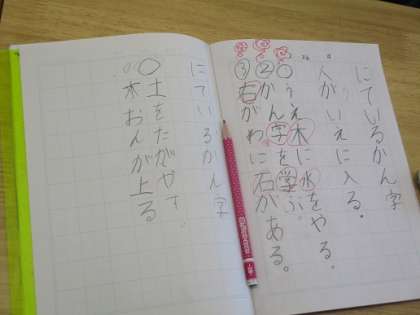 にているかん字
人がいえに入る。
○うえ木に水をやる。
②かん字を学ぶ。
③右がわに石がある。
にているかん字
○土をたがやす。
本おんが上る